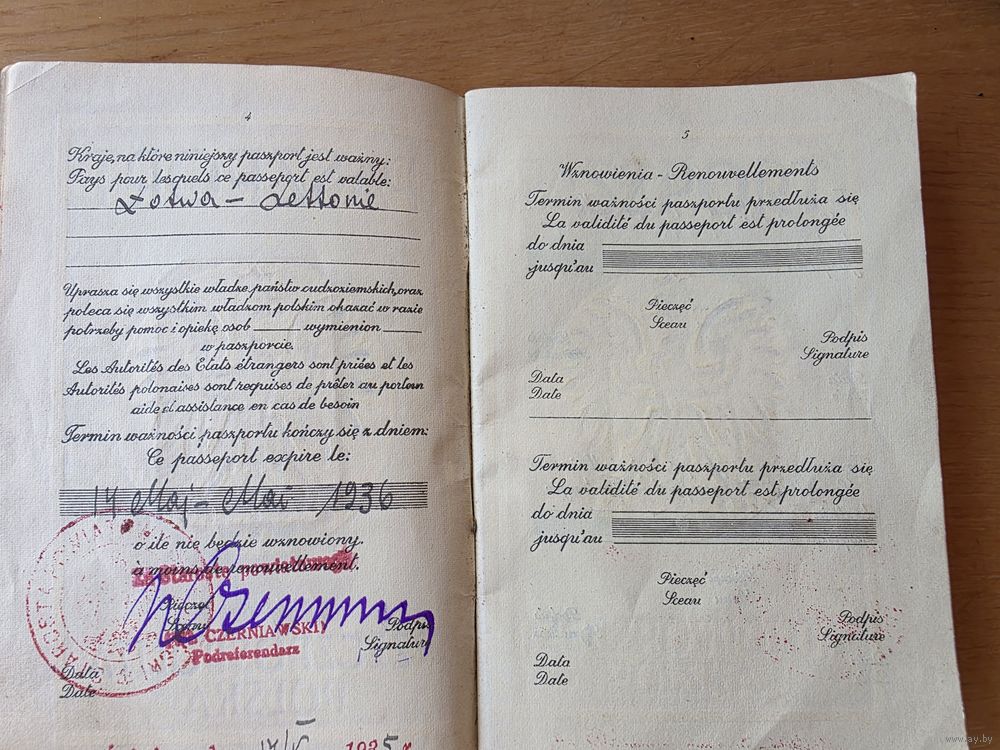 4
Kraje, na które niniejszy paszport jest ważny:
Pays pour lesquels ce passeport est valable:
Łotwa – Lettonie
Uprasza się wszystkie władze państw cudzoziemskich, oraz
poleca się wszystkim władzom polskim okazać w razie
potrzeby pomoc i opiekę osob____ wymienion____
w paszporcie.
Les Autorités des Etats étrangers sont priées et les
Autorités polonaises sont requises de prêter au porteur
aide et assistance en cas de besoin
Termin ważności paszportu kończy się z dniem:
Ce passeport expire le:
14 Maj – Mai 1936
o ile nie będzie wznowiony.
à moins de renouvellement.
Za Starostę powiatowego
Pieczęć
Sceau
Podpis
Signature
CZERNIAWSKI
Podreferendarz
Data
Date
14/V 1935 r
5
Wznowienia - Renouvellements
Termin ważności paszportu przedłuża się
La validité du passeport est prolongée
do dnia
jusqu'au
Pieczęć
Sceau
Podpis
Signature
Data
Date
Termin ważności paszportu przedłuża się
La validité du passeport est prolongée
do dnia
jusqu'au
Pieczęć
Sceau
Podpis
Signature
Data
Date
www.ay.by